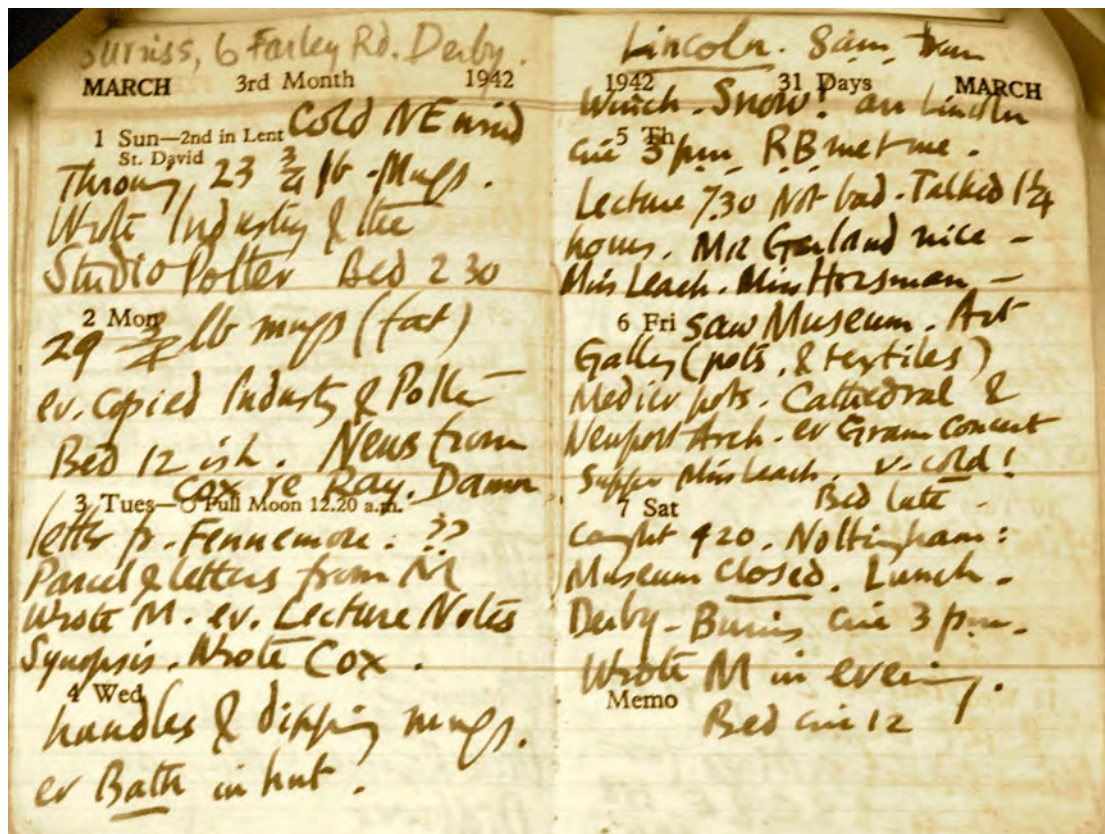 Burriss, 6 Farley Rd. Derby.
MARCH 3rd Month 1942
1 Sun—2nd in Lent Cold NE wind
St. David
Throwing, 23 ¾ lb - Mugs.
Wrote Industry & the
Studio Potter Bed 2 30
2 Mon
29 ¾ lb mugs (fat)
ev. copied Industry & Potter
Bed 12 ish. News from
Cox re Ray. Damn
3 Tues— Full Moon 12.20 a.m.
letter fr. Fennemore. ??
Parcel & letters from M
Wrote M. ev. Lecture Notes
Synopsis. Wrote Cox.
4 Wed
handles & dipping mugs.
ev Bath in hut.
Lincoln. 8am
1942 31 Days MARCH
Winch. Snow! arr Lincoln
5 Th
circ 3 pm RB met me.
Lecture 7.30 Not bad. Talked 1¼
hours. Mr Garland nice —
Miss Leach. Miss Horsman —
6 Fri Saw Museum. Art
Gallery (pots, & textiles)
Mediev pots. Cathedral &
Newport Arch. ev Gram Concert
Supper Miss Leach. v. cold!
Bed late -
7 Sat
Caught 9 20. Nottingham:
Museum closed. Lunch.
Derby - Burriss circ 3 pm.
Wrote M in evening.
Memo
Bed circ 12